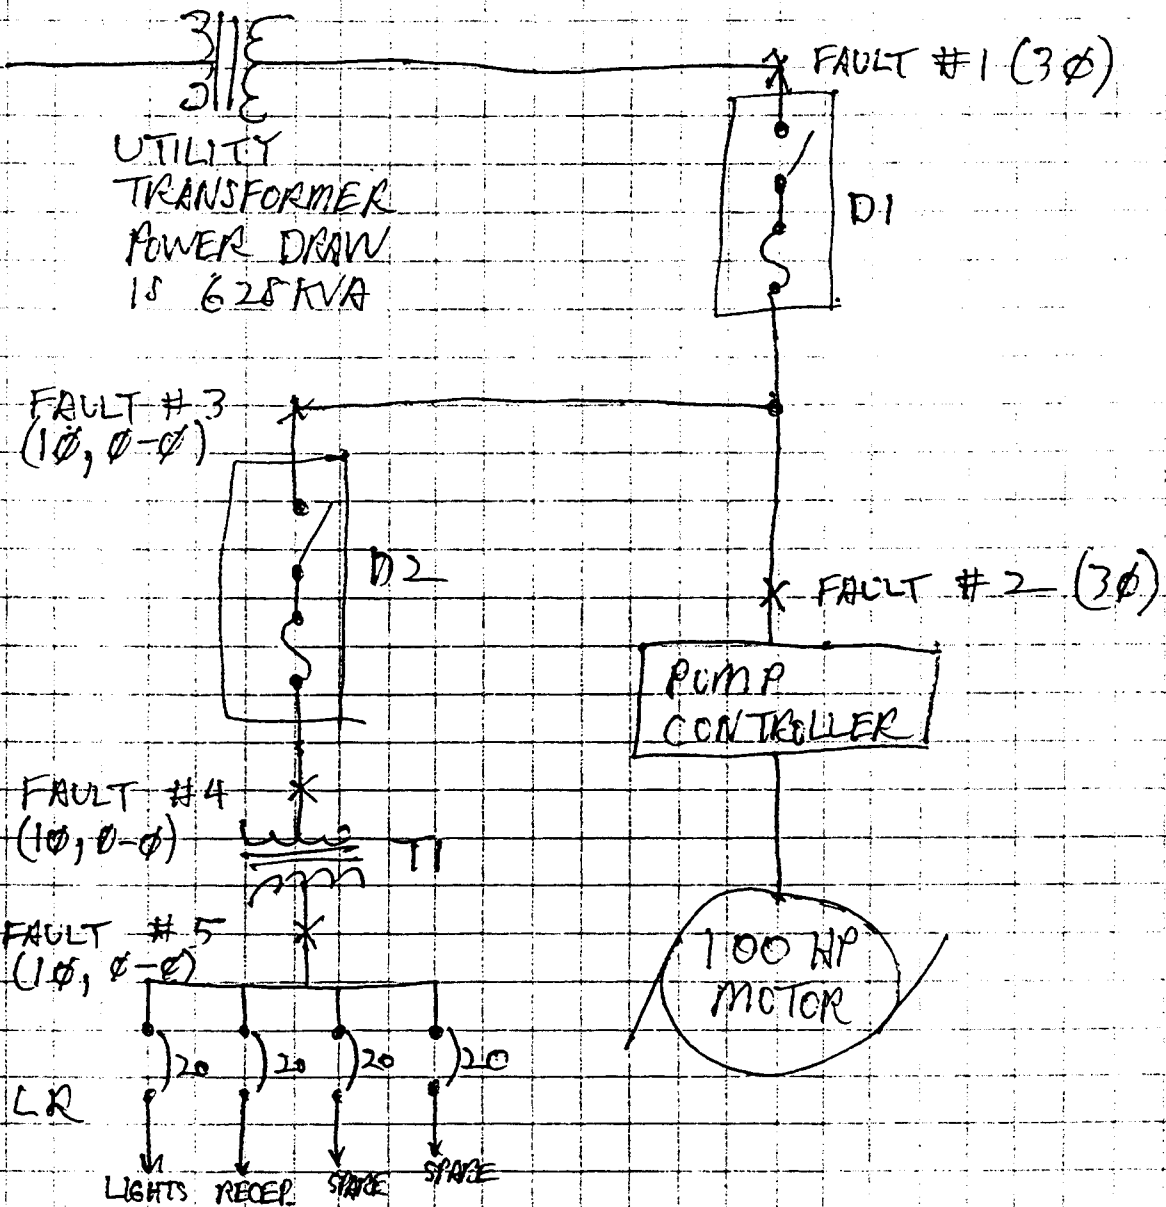 FAULT #1 (3Ø)
UTILITY
TRANSFORMER
POWER DRAW
IS 628 KVA
D1
FAULT #3
(1Ø, Ø-Ø)
D2
FAULT #2 (3Ø)
PUMP
CONTROLLER
FAULT #4
(1Ø, Ø-Ø)
T1
FAULT #5
(1Ø, Ø-Ø)
100 HP
MOTOR
20 20 20 20
LR
LIGHTS RECEP. SPARE SPARE